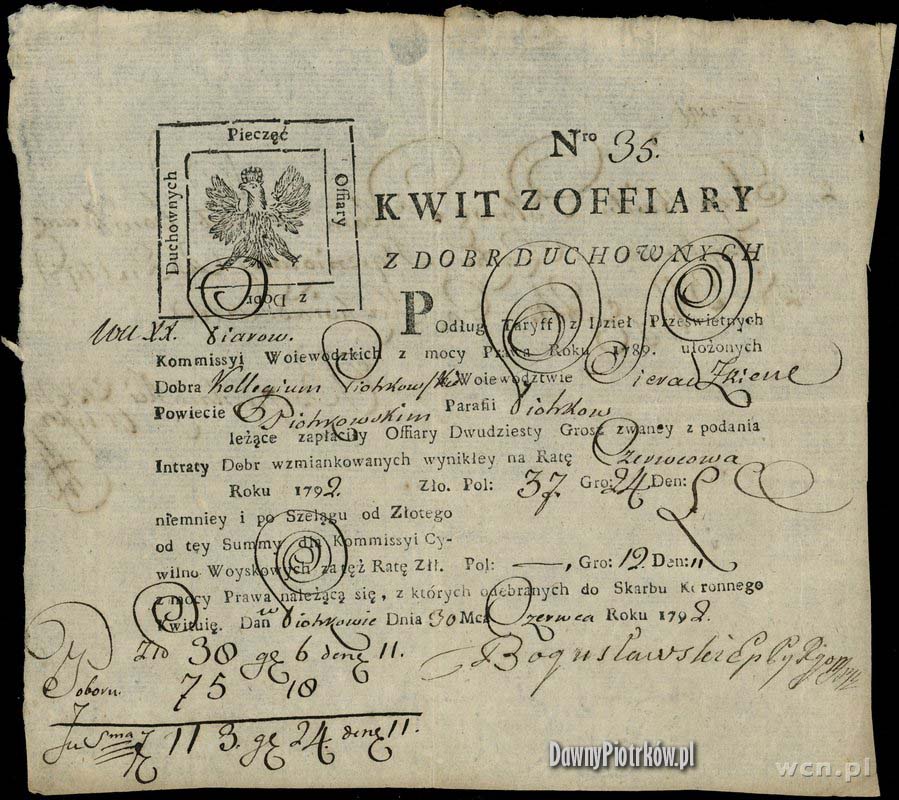 Pieczęć
Offiary
z Dobr
Duchownych
Nro 35.
KWIT z OFFIARY
Z DOBR DUCHOWNYCH
XX. Piarow.
POdług Taryff z Dzieł Prześwietnych
Kommissyi Woiewodzkich z mocy Prawa Roku 1789. ułożonych
Dobra Kollegium Woiewodztwie
Powiecie Piotrkowskim Parafii Piotrkow
leżące zapłaciły Offiary Dwudziesty Grosz zwaney z podania
Intraty Dobr wzmiankowanych wynikłey na Ratę Czerwcowa
Roku 1792. Zło. Pol: 37. Gro: 24 Den:
niemniey i po Szelągu od Złotego
od tęy Summy dla Kommissyi Cy-
wilno Woyskowych za tęż Ratę Złł. Pol: —, Gro: 12 Den: 11
z mocy Prawa należącą się, z których odebranych do Skarbu Koronnego
Kwituię. Dan w Piotrkowie Dnia 30 Mca Czerwca Roku 1792
Zło 38 gę 6 denę 11.
Bogusławski
Poboru. 75 18
Sma 113. gę 24. denę 11.
DawnyPiotrków.pl
wcn.pl